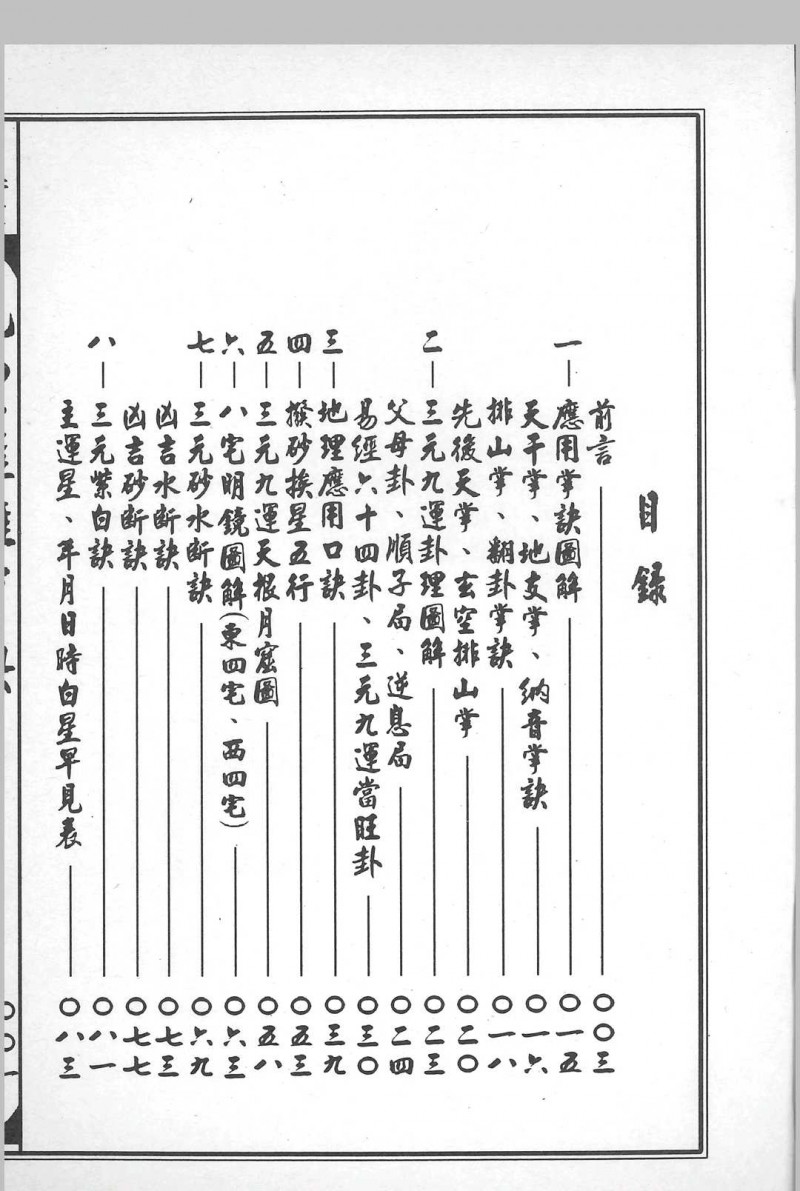 目錄
前言──〇〇三
一─應用掌訣圖解──〇一五
天干掌、地支掌、納音掌訣──〇一六
排山掌、翻卦掌訣──〇一八
先後天掌、玄空排山掌──〇二〇
二─三元九運卦理圖解──〇二三
父母卦、順子局、逆息局──〇二四
易經六十四卦、三元九運當旺卦──〇三〇
三─地理應用口訣──〇三九
四─撥砂挨星五行──〇五三
五─三元九運天根月窟圖──〇五八
六─八宅明鏡圖解(東四宅、西四宅)──〇六三
七─三元砂水斷訣──〇六九
凶吉水斷訣──〇七三
凶吉砂斷訣──〇七七
八─三元紫白訣──〇八一
主運星、年月日時白星早見表──〇八三